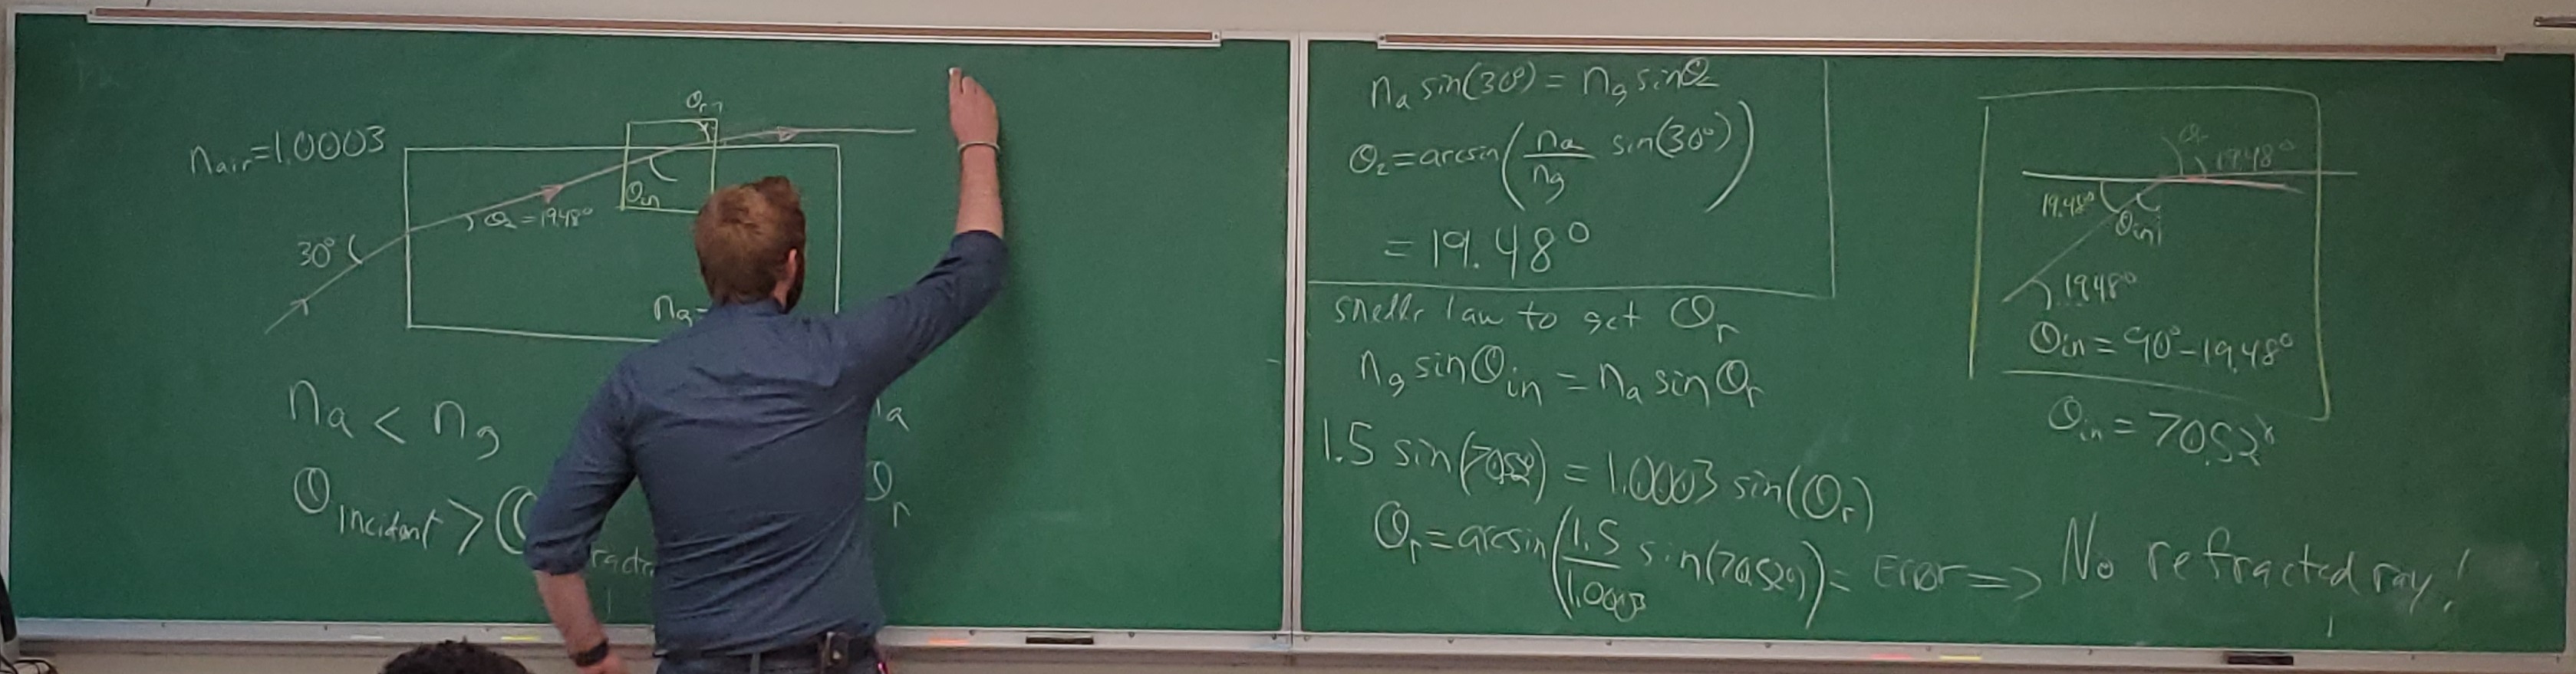 nair=1.0003
Θr
Θin
Θ2=19.48°
30°
ng=
na < ng
Θincident >
na sin(30°) = ng sinΘ2
Θ2=arcsin(na/ng sin(30°))
= 19.48°
snells law to get Θr
ng sinΘin = na sinΘr
1.5 sin(70.52°) = 1.0003 sin(Θr)
Θr=arcsin(1.5/1.0003 sin(70.52°))= Error => No refracted ray!
Θr 19.48°
19.48° Θin
19.48°
Θin = 90°-19.48°
Θin = 70.52°